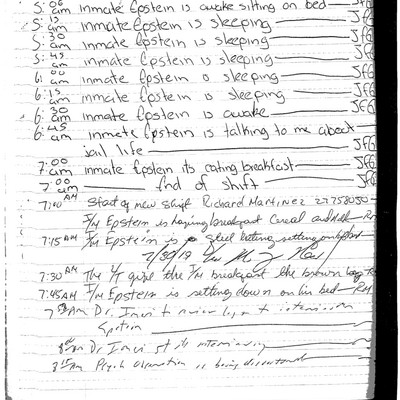 5:00 am inmate Epstein is awake sitting on bed JFG
5:15 am inmate Epstein is sleeping JFG
5:30 am inmate Epstein is sleeping JFG
5:45 am inmate Epstein is sleeping JFG
6:00 am inmate Epstein is sleeping JFG
6:15 am inmate Epstein is sleeping JFG
6:30 am inmate Epstein is awake JFG
6:45 am inmate Epstein is talking to me about
jail life JFG
7:00 am inmate Epstein its eating breakfast JFG
7:00 am End of shift JFG
7:00 AM Start of new shift Richard Martinez
I/M Epstein is having breakfast Cereal and RM
7:15 AM I/M Epstein is
7/30/19
7:30 AM The the I/M breakfast the brown bag RM
7:45 AM I/M Epstein is setting down on his bed RM
Dr. to
Epstein
8:00 am Dr interviewing
8:15 am Psych observation is being discontinued